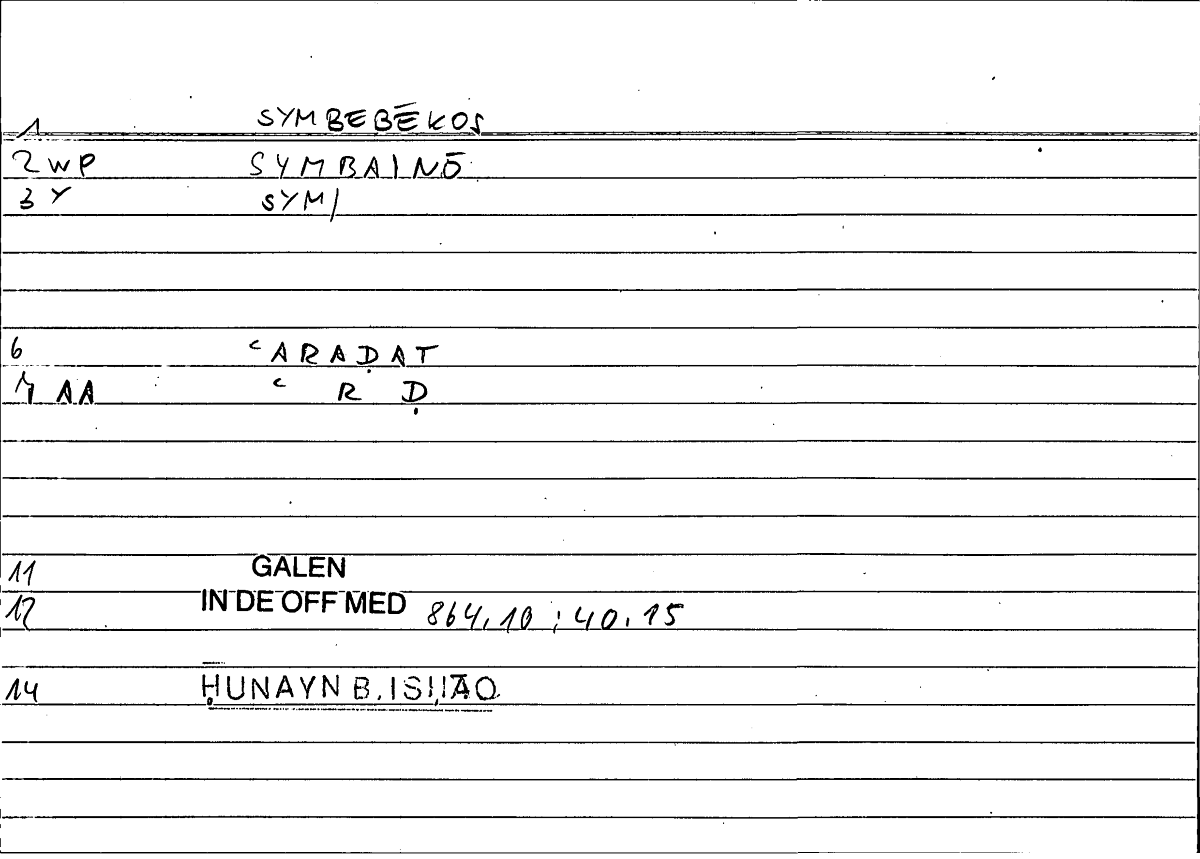 1 SYMBEBĒKOS
2 WP SYMBAINŌ
3 Y SYM/
6 ʿARAḌAT
7 AA ʿ R Ḍ
11 GALEN
12 IN DE OFF MED 864,10 ; 40,15
14 ḤUNAYN B. ISḤĀQ